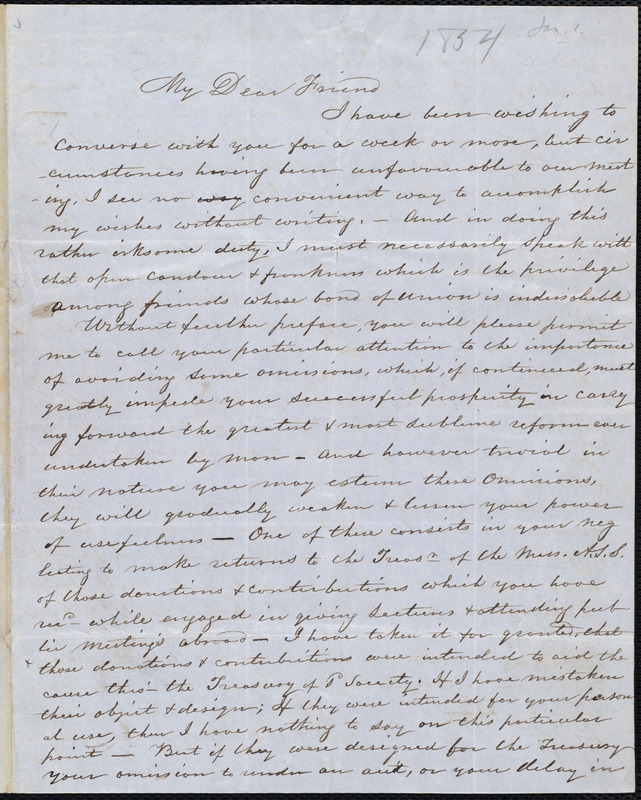 1834 Jan 1.
My Dear Friend
I have been wishing to
converse with you for a week or more, but cir
-cumstances having been unfavourable to our meet
-ing, I see no way convenient way to accomplish
my wishes without writing. — And in doing this
rather irksome duty, I must necessarily speak with
that open candour & frankness which is the privilege
among friends whose bond of union is indissoluble
Without further preface, you will please permit
me to call your particular attention to the importance
of avoiding some omissions, which, if continued, must
greatly impede your successful prosperity in carry
ing forward the greatest & most sublime reform ever
undertaken by man — and however trivial in
their nature you may esteem these omissions,
they will gradually weaken & lessen your power
of usefulness — One of these consists in your neg
lecting to make returns to the Treasr. of the Mass. A.S.S.
of those donations & contributions which you have
recd. while engaged in giving Lectures & attending pub
lic meetings abroad — I have taken it for granted, that
those donations & contributions were intended to aid the
cause thro' the Treasury of Society. If I have mistaken
their object & design; If they were intended for your person
al use, then I have nothing to say on this particular
point — But if they were designed for the Treasury
your omission to render an acct, or your delay in